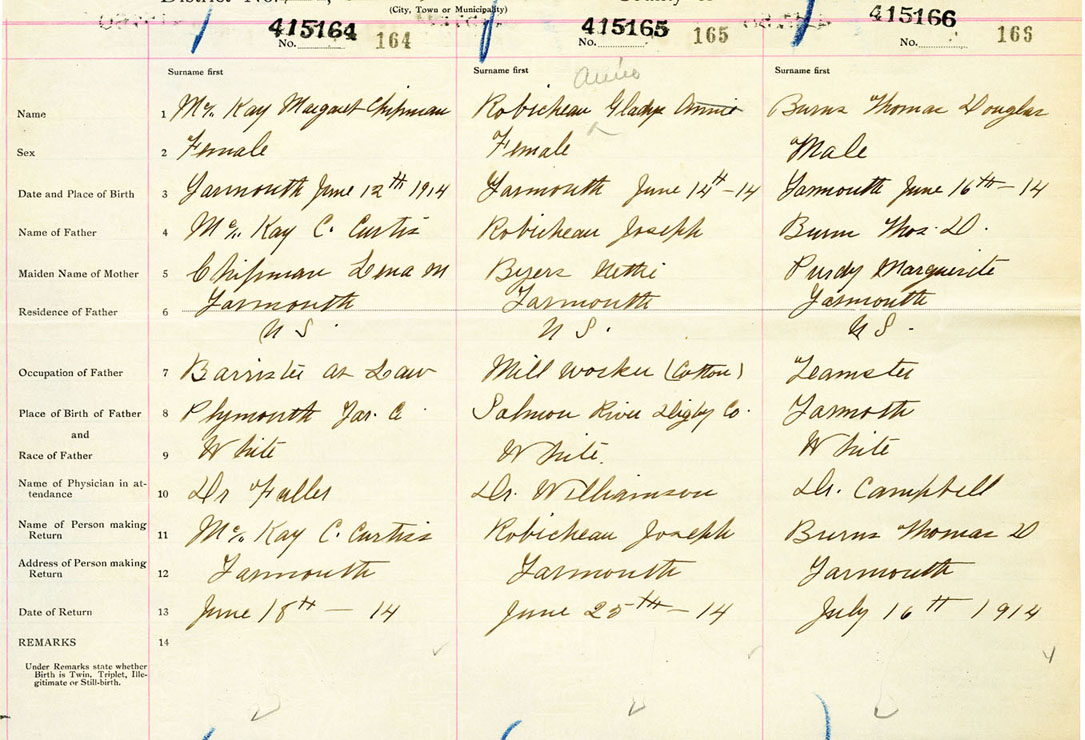 (City, Town or Municipality)
415164 415165 415166
No. 164 No. 165 No. 166
Surname first Surname first Surname first
Annie
Name 1 Mc. Kay Margaret Chipman Robicheau Gladys Annie Burns Thomas Douglas
Sex 2 Female Female Male
Date and Place of Birth 3 Yarmouth June 12th 1914 Yarmouth June 14th - 14 Yarmouth June 16th - 14
Name of Father 4 Mc. Kay C. Curtis Robicheau Joseph Burns Thos. D.
Maiden Name of Mother 5 Chipman Lena M Byers Nettie Purdy Marguerite
Residence of Father 6 Yarmouth Yarmouth Yarmouth
N S. N S. N S.
Occupation of Father 7 Barrister at Law Mill Worker (Cotton) Teamster
Place of Birth of Father 8 Plymouth Yar. Co Salmon River Digby Co. Yarmoth
and
Race of Father 9 White White. White
Name of Physician in at-
tendance 10 Dr Fuller Dr. Williamson Dr. Campbell
Name of Person making
Return 11 Mc. Kay C. Curtiss Robicheau Joseph Burns Thomas D
Address of Person making
Return 12 Yarmouth Yarmouth Yarmouth
Date of Return 13 June 18th - 14 June 25th - 14 July 16th 1914
REMARKS 14
Under Remarks state whether
Birth is Twin, Triplet, Ille-
gitimate or Still-birth.